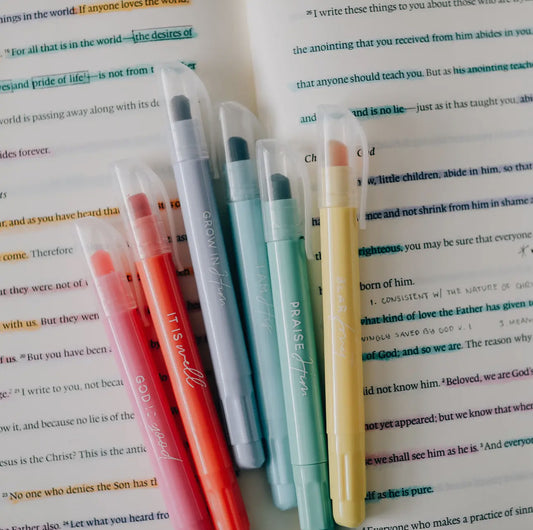 hings in the world. If anyone loves the world,
For all that is in the world—the desires of
and pride of life—is not from t
world is passing away along with its de
ides forever.
ts
ur, and as you have heard tha
come. Therefore
but they were not of
with us. But they w
of us. But you have been
ge. I write to you, not becau
ow it, and because no lie is of the
Jesus is the Christ? This is the anti
No one who denies the Son has
Father also. Let what you heard from
I write these things to you about those who
the anointing that you received from him abides in you,
that anyone should teach you. But as his anointing teache
and is no lie—just as it has taught you, abi
Ch God
little children, abide in him, so that
and not shrink from him in shame a
righteous, you may be sure that everyone
born of him.
1. CONSISTENT W/ THE NATURE OF
what kind of love the Father has given to
SAVED BY GOD V. 1
of God; and so we are. The reason why
did not know him. Beloved, we are God's
not yet appeared; but we know that when
we shall see him as he is. And everyone
elf as he is pure.
Everyone who makes a practice of sinn
GOD is good
IT IS well
GROW IN Him
I AM His
PRAISE Him